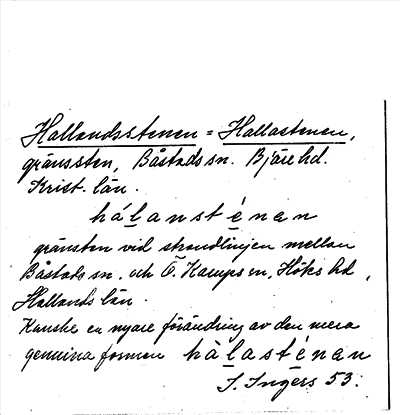 Hallandsstenen = Hallastenen,
gränssten, Båstads sn. Bjäre hd.
Krist. län.
hálansténan
gränsten vid strandlinjen mellan
Båstads sn. och Ö. Karups sn, Höks hd,
Hallands län.
Kanske en nyare förändring av den mera
genuina formen hàlasténan
I. Ingers 53.